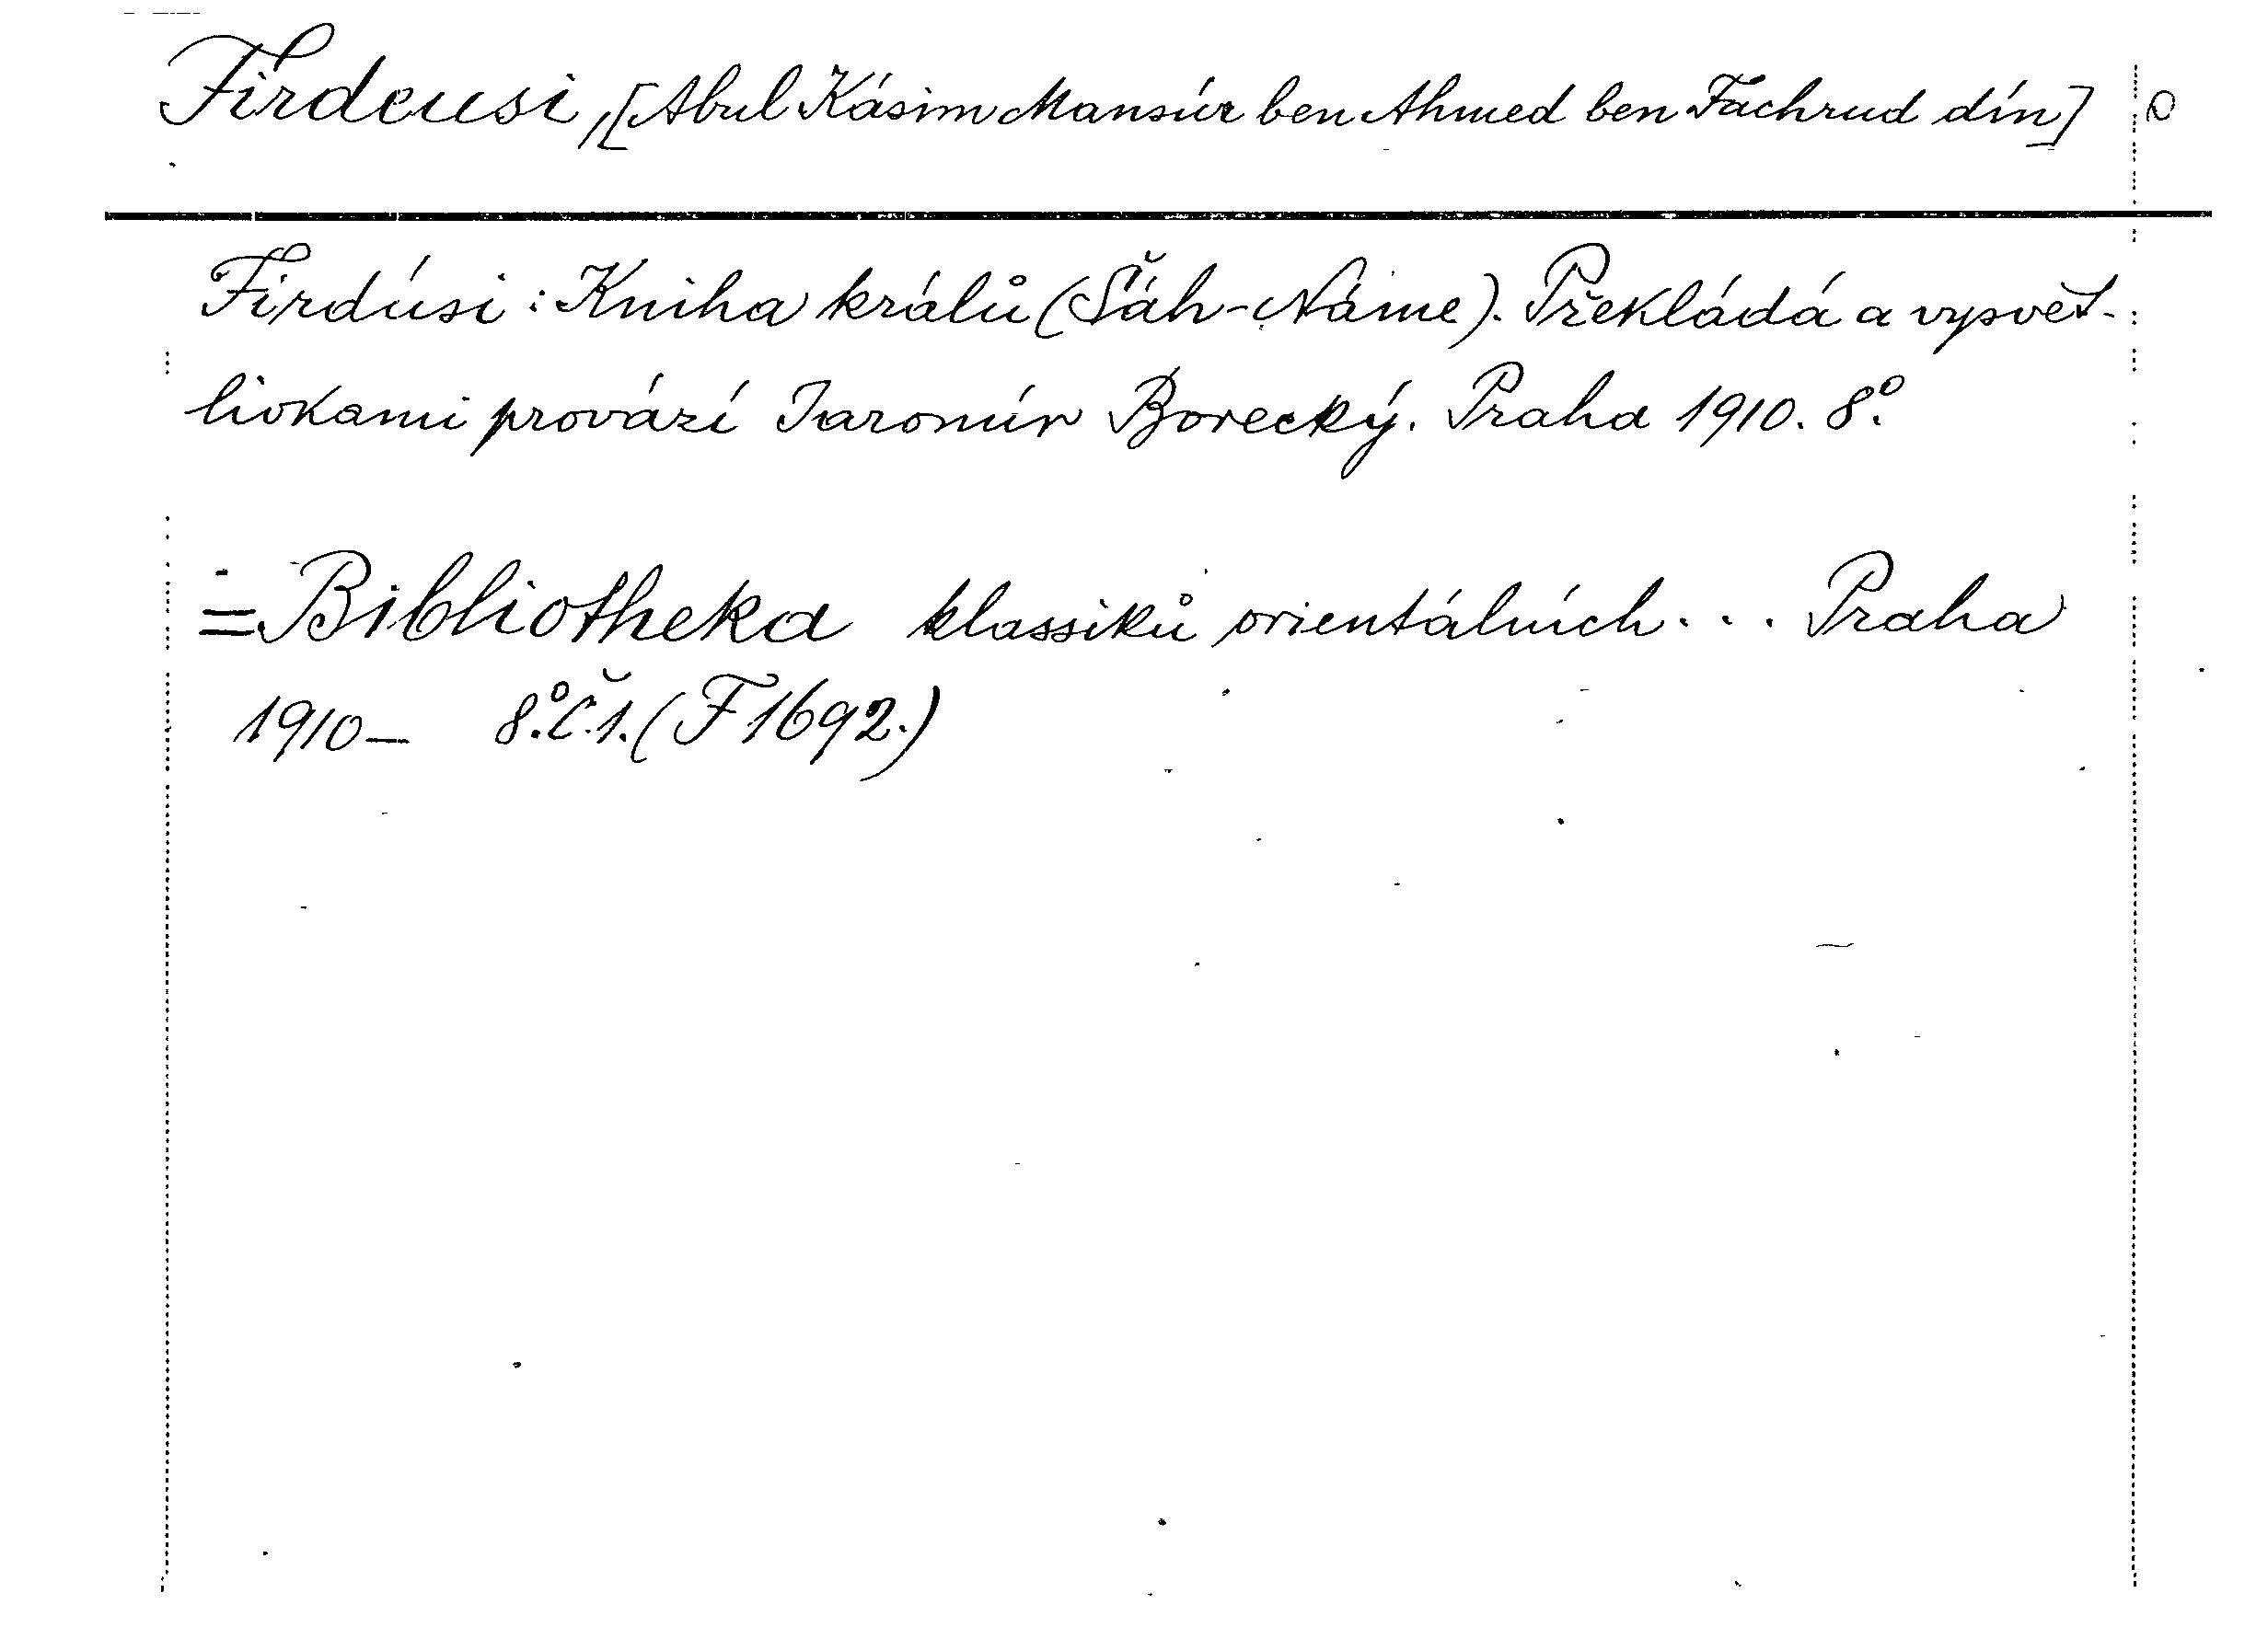 Firdeusi, [Abul Kásim Mansúr ben Ahmed ben Fachrud dín]
Firdúsi: Kniha králů (Šáh-Náme). Překládá a vysvět-
livkami provází Jaromír Borecký. Praha 1910. 8°.
= Bibliotheka klassiků orientálních... Praha
1910- 8°. Č. 1. (F 1692.)